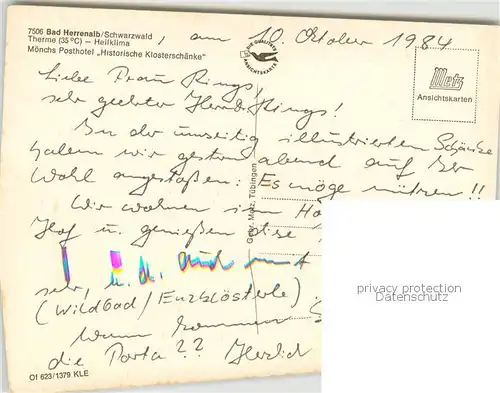 7506 Bad Herrenalb/Schwarzwald
Therme (35 °C) — Heilklima
Mönchs Posthotel „Historische Klosterschänke"
DIE QUALITÄTS
ANSICHTSKARTE
, am 10. Oktober 1984
Metz
Ansichtskarten
Liebe Frau Rings,
sehr geehrter Herr Rings!
In der umseitig illustrierten Schänke
haben wir gestern abend auf Ihr
Wohl angestoßen: Es möge nützen!!
Wir wohnen im
Hof u. genießen diese
sehr, u. a. auch mit
(Wildbad/Enzklösterle)
Wann kommen
die Porta?? Herzlich
Gebr. Metz, Tübingen
privacy protection
Datenschutz
Of 623/1379 KLE